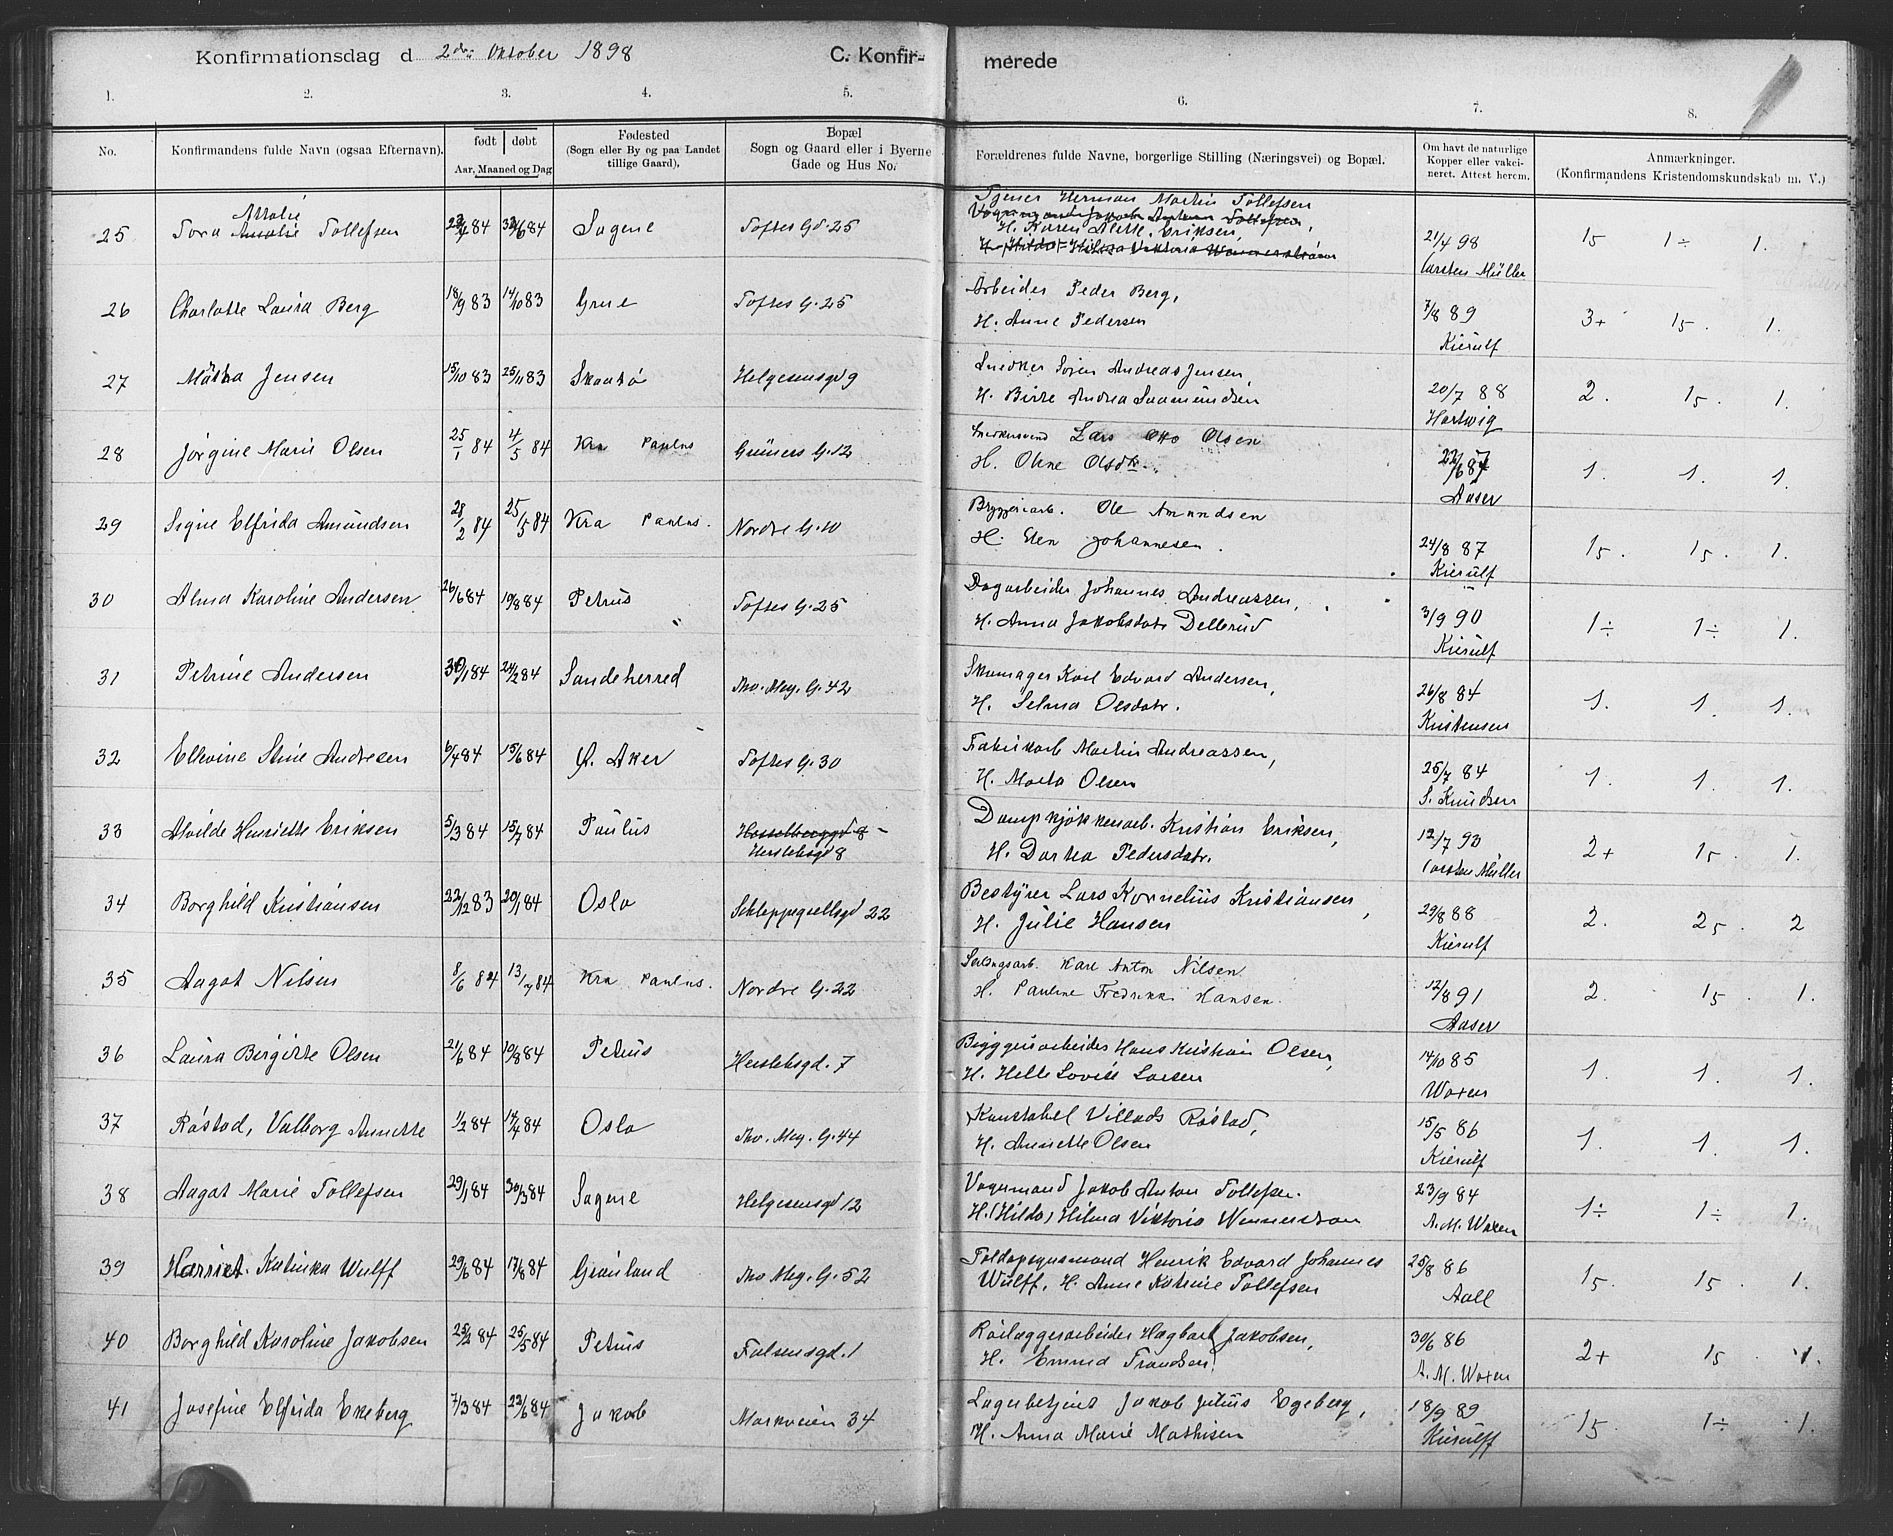 Konfirmationsdag d 2den Oktober 1898 C. Konfir- merede
1. 2. 3. 4. 5. 6. 7. 8.
No. Konfirmandens fulde Navn (ogsaa Efternavn). født døbt Aar, Maaned og Dag Fødested (Sogn eller By og paa Landet tillige Gaard). Bopæl Sogn og Gaard eller i Byerne Gade og Hus No. Forældrenes fulde Navne, borgerlige Stilling (Næringsvei) og Bopæl. Om havt de naturlige Kopper eller vakcineret. Attest herom. Anmærkninger. (Konfirmandens Kristendomskundskab m. V.)
Tjener Herman Martin Tollefsen
25 Tora Amalie Tollefsen 84 84 Sagene Toftes Gd. 25 Vognmand Jakob Anton Tollefsen,
H. Karen Alette Eriksen,
H. Hilda Hilma Viktoria Wennerstrøm 21/4 98 15 1÷ 1.
Carsten Müller
26 Charlotte Laura Berg 18/9 83 14/10 83 Grue Toftes G. 25 Arbeider Peder Berg,
H. Anne Pedersen 7/8 89 3+ 15. 1.
Kierulf
27 Martha Jensen 15/10 83 25/11 83 Skaatø Helgesensgd 9 Snedker Søren Andreas Jensen,
H. Birte Andrea Saamundsen 20/7 88 2. 15. 1.
Hartwig
28 Jørgine Marie Olsen 25/1 84 4/5 84 Kra Paulus Grüners G. 12 Snedkersvend Lars Otto Olsen
H. Oline Olsdtr. 1. 1. 1.
Aaser
29 Signe Elfrida Amundsen 28/2 84 25/5 84 Kra Paulus. Nordre G. 10 Bryggeriarb. Ole Amundsen
H. Elen Johannesen. 24/8 87 15. 15. 1.
Kierulf
30 Alma Karoline Andersen 26/6 84 10/8 84 Petrus Toftes G. 25 Dagarbeider Johannes Andreassen,
H. Anna Jakobsdatr Dellerud 3/9 90 1÷ 1÷ 1.
Kierulf
31 Petrine Andersen 30/1 84 24/2 84 Sandeherred Thv. Mey. G. 42 Skomager Karl Edvard Andersen,
H. Selma Olsdatr. 26/8 84 1. 1. 1.
Kristensen
32 Ellevine Stine Andresen 6/4 84 15/6 84 Ø. Aker Toftes G. 30 Fabrikarb Martin Andreassen,
H. Marta Olsen 25/7 84 1. 1. 1.
S. Knudsen
33 Alvilde Henriette Eriksen 5/3 84 15/7 84 Paulus Hasselberggd 8 Dampkjøkkenarb. Kristian Eriksen,
Herslebsgd 8 H. Dortea Pedersdatr. 12/7 93 2+ 15. 1.
Carsten Müller
34 Borghild Kristiansen 22/12 83 20/1 84 Oslo Schleppegrellsgd 22 Bestyrer Lars Kornelius Kristiansen,
H. Julie Hansen 29/8 88 2. 25. 2
Kierulf
35 Aagot Nilsen 8/6 84 13/7 84 Kra Paulus. Nordre G. 22 Karl Anton Nilsen
H. Pauline Fredrikke Hansen. 12/8 91 2. 15. 1.
Aaser
36 Laura Bergitte Olsen 21/6 84 10/8 84 Petrus Herslebsgd. 7 Bryggeriarbeider Hans Kristian Olsen,
H. Helle Lovise Larsen 14/10 85 1. 1. 1.
Woxen
37 Røstad, Valborg Annette 1/2 84 14/4 84 Oslo Thv. Mey. G. 44 Konstabel Villads Røstad,
H. Annette Olsen 15/5 86 1. 1. 1.
Kierulf
38 Aagot Marie Tollefsen 29/1 84 30/3 84 Sagene Helgesensgd 12 Vognmand Jakob Anton Tollefsen.
H. (Hilda) Hilma Viktoria Wennerstrøm 23/9 84 1÷ 1÷ 1.
A. M. Woxen
39 Harriet Katinka Wulff 29/6 84 17/8 84 Grønland Thv Mey. G. 52 Toldopsynsmand Henrik Edvard Johannes
Wulff, H. Anne Katrine Tollefsen 25/8 86 15. 15. 1.
Aall
40 Borghild Karoline Jakobsen 25/2 84 25/5 84 Petrus Falsensgd. 1 Rørlæggerarbeider Hagbart Jakobsen,
H. Emma Frandsen 30/6 86 2+ 15. 1.
A. M. Woxen
41 Josefine Elfrida Ekeberg 7/3 84 22/6 84 Jakob Markveien 34 Lagerbetjent Jakob Julius Egeberg,
H. Anna Marie Mathisen 18/9 89 15. 1÷ 1.
Kierulff